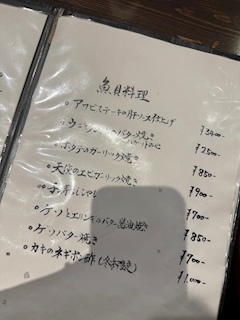 魚貝料理
。アワビステーキの肝ソース仕上げ ¥3400-
。ウニ バター焼き ¥2500
。ホタテのガーリック焼き ¥850-
。天使のエビガーリック焼き ¥900-
¥700-
。ゲソとエリンギのバター醤油焼き ¥850-
。ゲソバター焼き ¥700-
。カキのネギポン酢 ¥1,000-